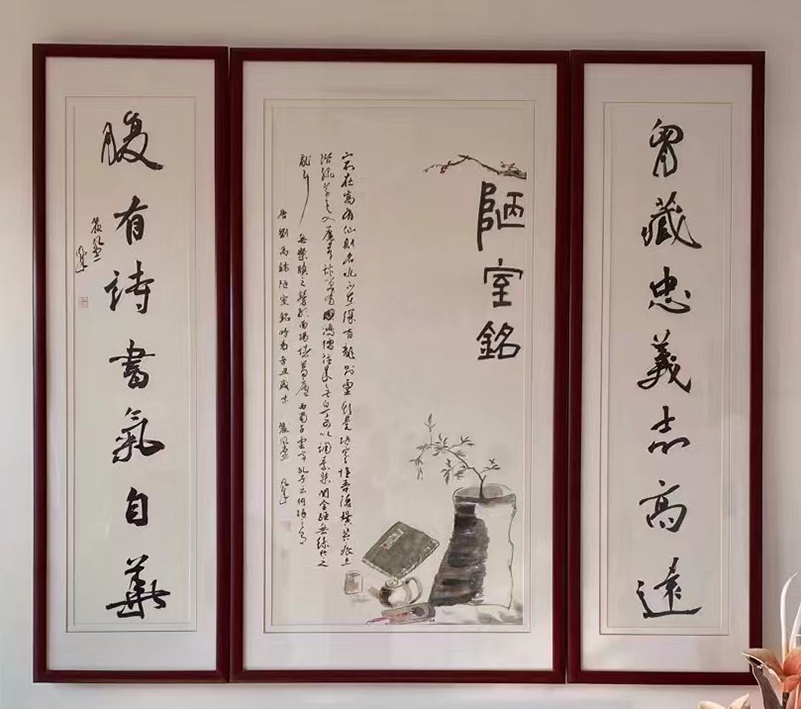 胷藏忠義志高遠
陋室銘
山不在高有仙則名水不在深有龍則靈斯是陋室惟吾德馨苔痕上
階綠草色入簾青談笑有鴻儒往來無白丁可以調素琴閱金經無絲竹之
亂耳無案牘之勞形南陽諸葛廬西蜀子雲亭孔子云何陋之有
唐劉禹錫陋室銘時為辛丑歲末
腹有詩書氣自華